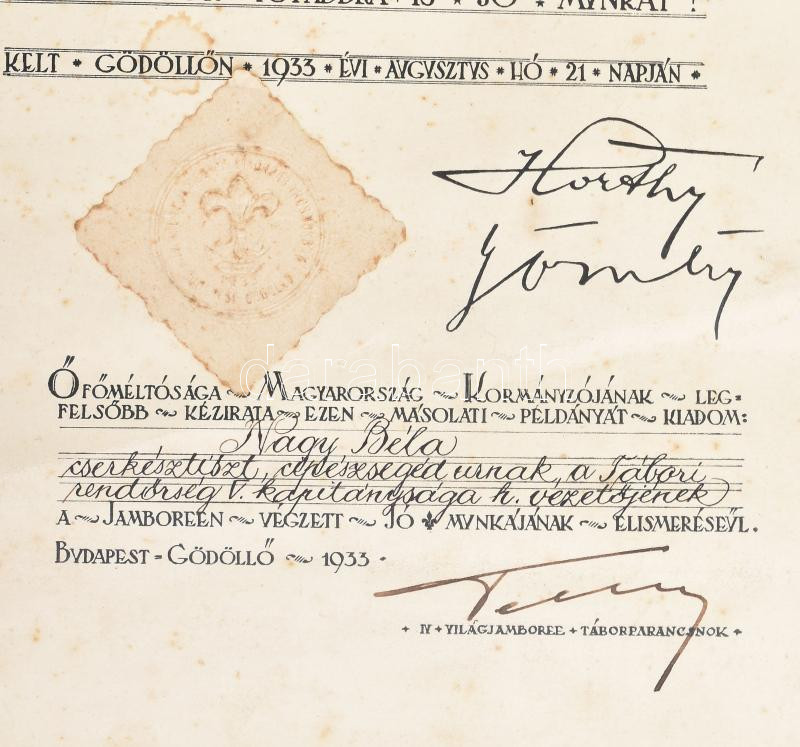 TOVÁBBRA IS * JÓ * MUNKÁT !
KELT * GÖDÖLLŐN * 1933 * ÉVI * AVGVSZTVS * HÓ * 21 * NAPJÁN *
Horthy
Gömbös
ŐFŐMÉLTÓSÁGA ~ MAGYARORSZÁG ~ KORMÁNYZÓJÁNAK ~ LEG=
FELSŐBB ~ KÉZIRATA ~ EZEN ~ MÁSOLATI ~ PÉLDÁNYÁT ~ KIADOM:
Nagy Béla
cserkésztiszt, építészsegéd urnak, a Tábori
rendőrség V. kapitánysága h. vezetőjének
A ~ JAMBOREEN ~ VÉGZETT ~ JÓ ⚜ MVNKÁJÁNAK ~ ELISMERÉSEÜL.
BVDAPEST = GÖDÖLLŐ ~ 1933 ·
Teleky
+ IV + VILÁGJAMBOREE + TÁBORPARANCSNOK +
darabanth